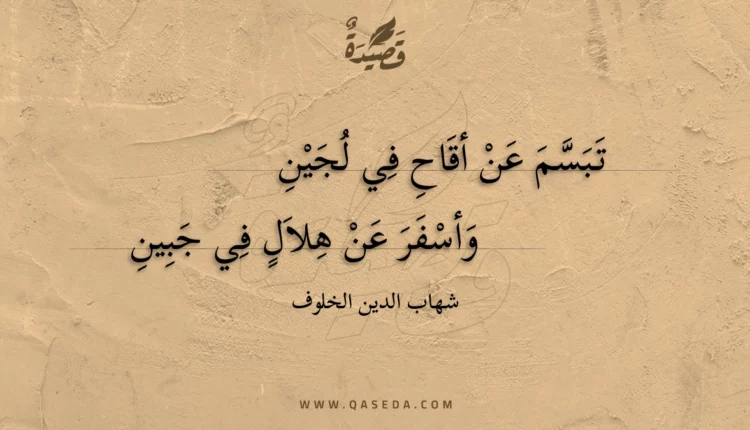 قَصِيدَةٌ
تَبَسَّمَ عَنْ أقَاحِ فِي لُجَيْنِ
وَأسْفَرَ عَنْ هِلاَلٍ فِي جَبِينِ
شهاب الدين الخلوف
WWW.QASEDA.COM